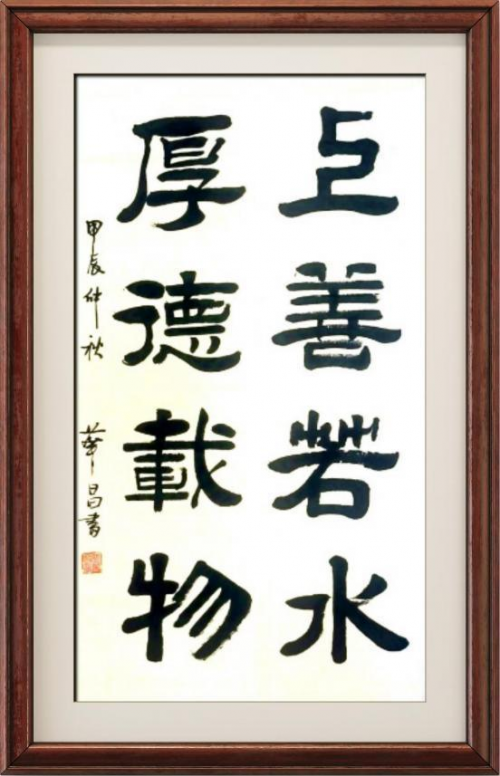 上善若水
厚德載物
甲辰仲秋 華昌書